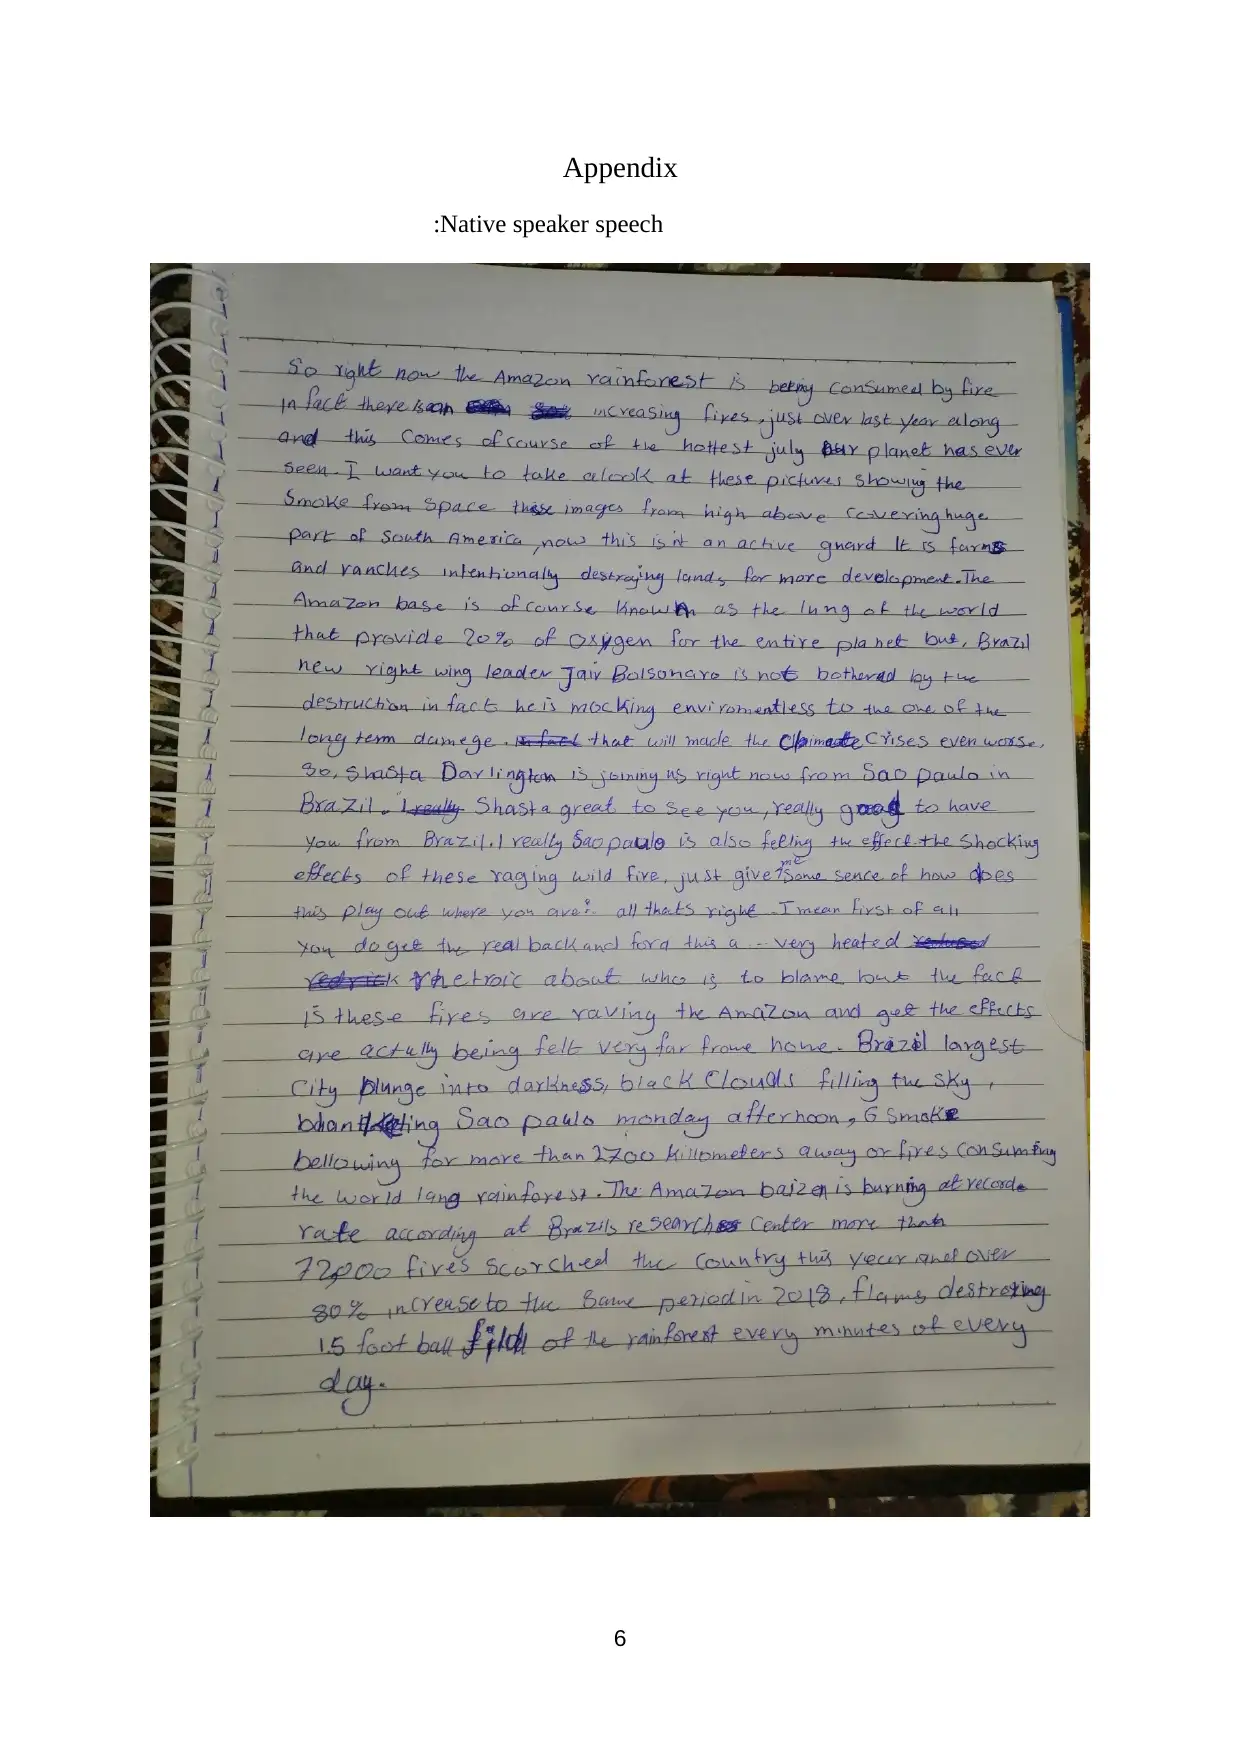 Appendix
:Native speaker speech
So right now the Amazon rainforest is being consumed by fire
In fact there is an increasing fires, just over last year along
and this comes of course of the hottest july our planet has ever
seen. I want you to take a look at these pictures showing the
Smoke from space these images from high above covering huge
part of South America, now this isn't an active guard It is farms
and ranches intentionally destroying lands for more development. The
Amazon base is of course known as the lung of the world
that provide 20% of oxygen for the entire planet but, Brazil
new right wing leader Jair Bolsonaro is not bothered by the
destruction in fact he is mocking enviromentless to the one of the
long term damege. that will made the Climate Crises even worse,
So, Shasta Darlington is joining us right now from Sao paulo in
Brazil. Shasta great to see you, really good to have
you from Brazil. I really Sao paulo is also felling the effect the shocking
effects of these raging wild fire, just give me some sence of how does
this play out where you are? all thats right. I mean first of all
you do get the real back and ford this a -- very heated
rhetroic about who is to blame but the fact
is these fires are raving the Amazon and get the effects
are actully being felt very far frome home. Brazil largest
City plunge into darkness, black Clouds filling the sky,
Sao paulo monday afternoon, G smoke
bellowing for more than 2700 killometers away or fires consuming
the world lang rainforest. The Amazon baizen is burning at recorde
rate according at Brazils research Center more than
72,000 fires scorched the country this year and over
80% increase to the same period in 2018, flams destroying
1.5 foot ball field of the rainforest every minutes of every
day.
6